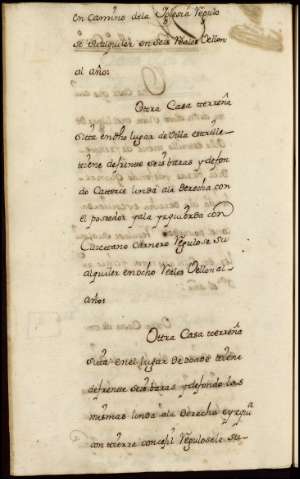 en Camino dela Iglesia Regulo
se su alquiler en seis Reales Vellon
al año:
Ottra Casa terrena
sitta en dho lugar de
tiene defrente seis baras y defon
do Catorce linda ala derecha con
el posttedor y ala yzquierda con
Cayetano Carnero Regulose su
alquiler en ocho Reales Vellon al
año:
Ottra Casa terrena
sitta en el lugar de tiene
defrente seis baras y defondo las
mismas linda ala derecha e yzqu
con tierra concejil Regulosele su